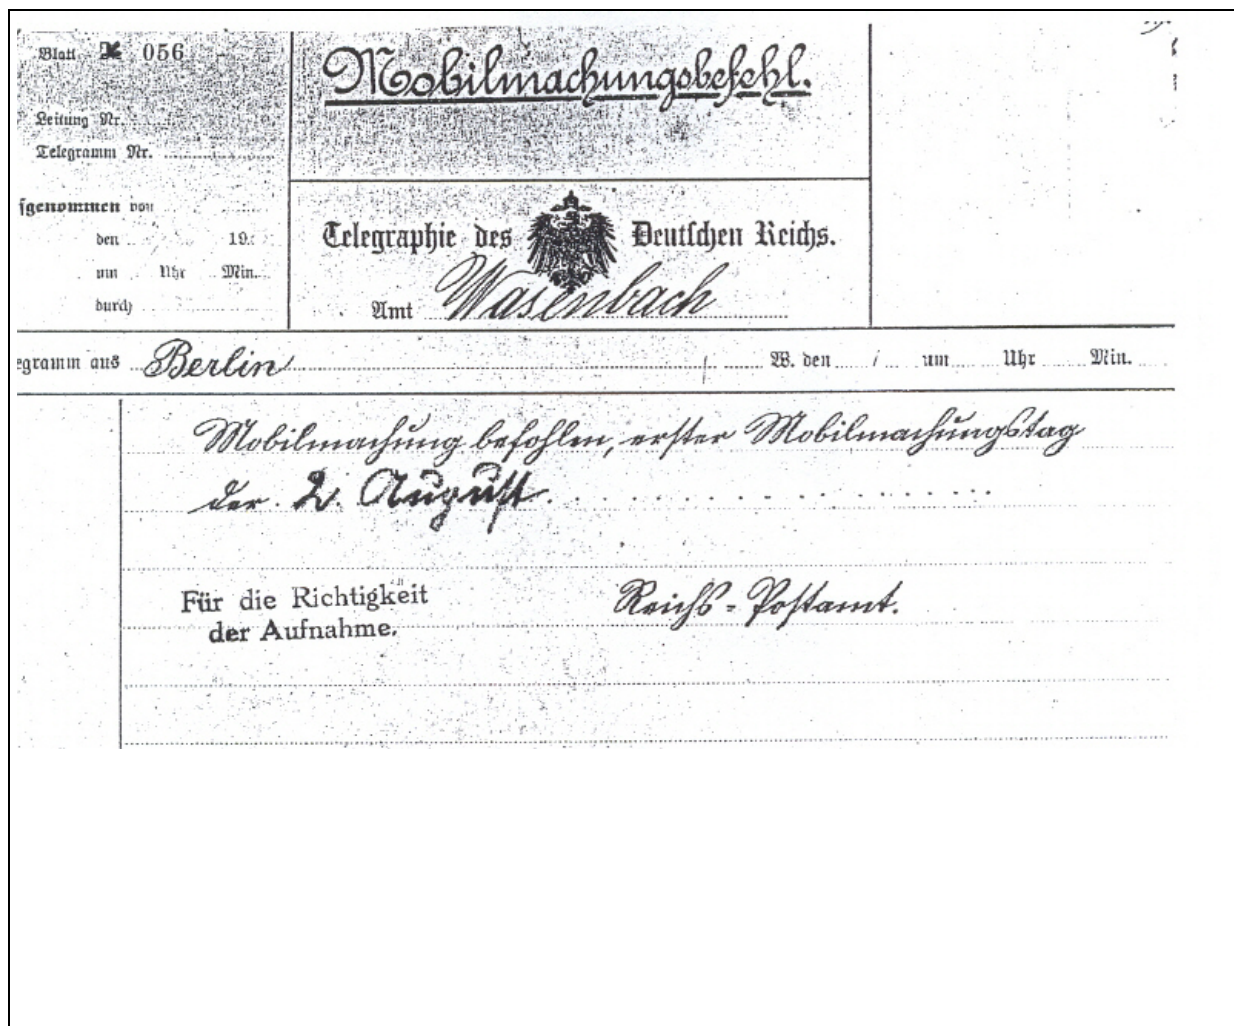 Blatt 056
Leitung Nr.
Telegramm Nr.
fgenommen von
den 19
um Uhr Min.
durch
Mobilmachungsbefehl.
Telegraphie des Deutschen Reichs.
Amt Wasenbach
egramm aus Berlin W. den / um Uhr Min.
Mobilmachung befohlen, erster Mobilmachungstag
der 2. August.
Für die Richtigkeit
der Aufnahme.
Reichs-Postamt.